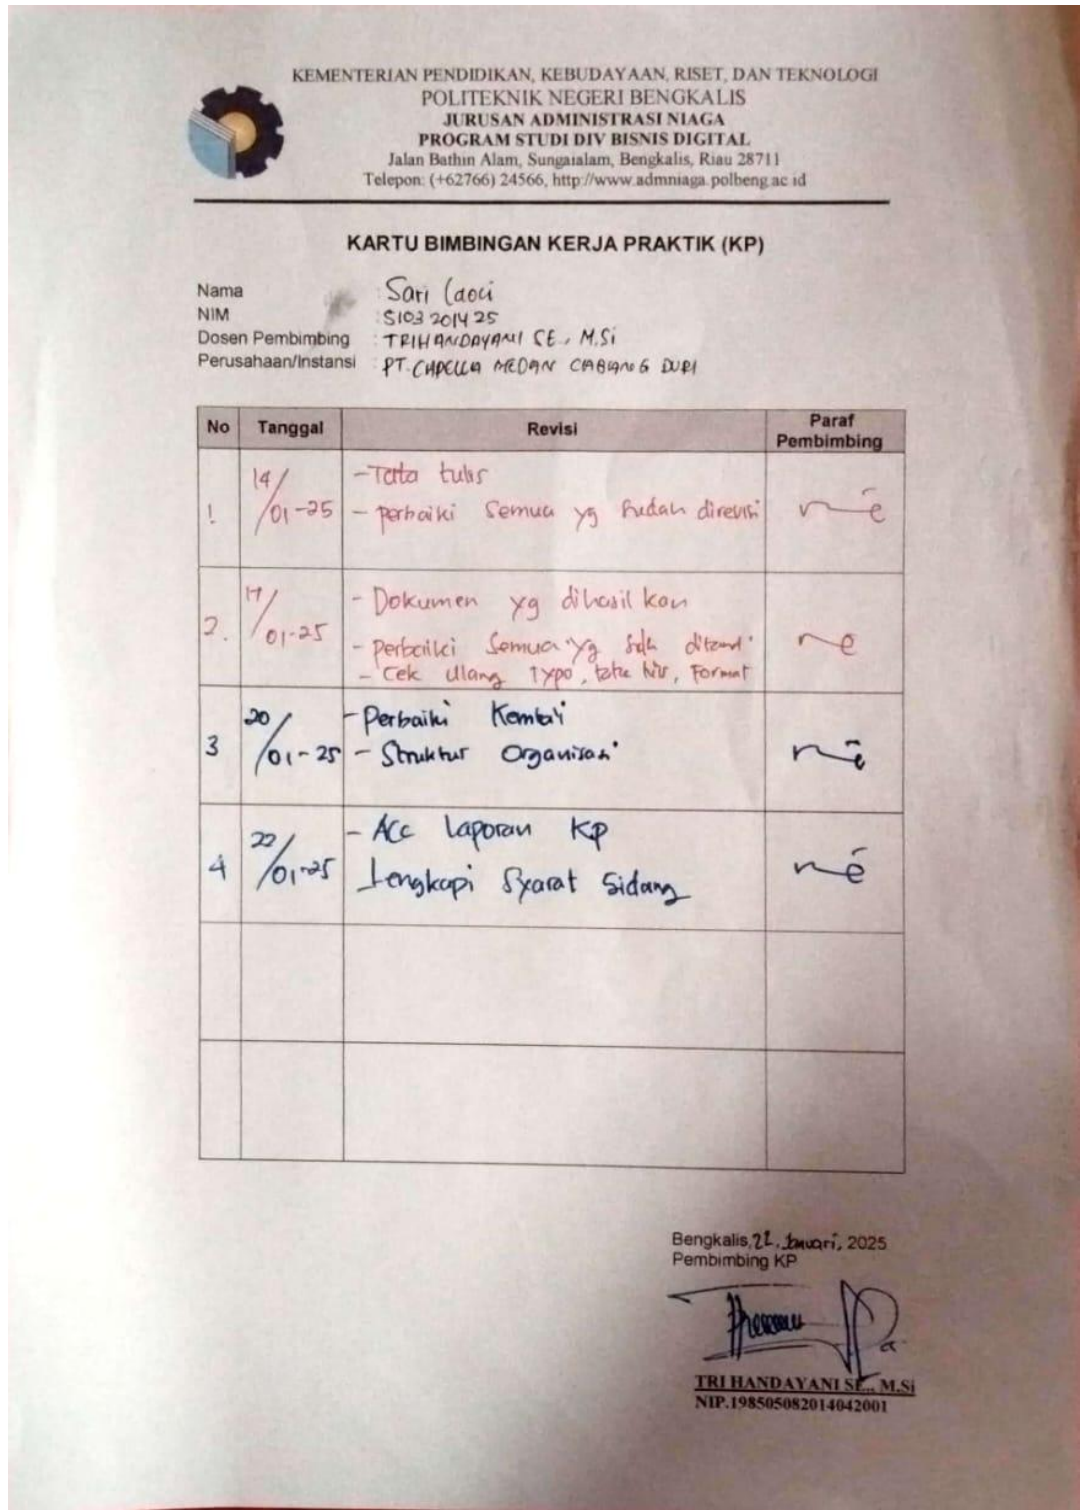 KEMENTERIAN PENDIDIKAN, KEBUDAYAAN, RISET, DAN TEKNOLOGI
POLITEKNIK NEGERI BENGKALIS
JURUSAN ADMINISTRASI NIAGA
PROGRAM STUDI DIV BISNIS DIGITAL
Jalan Bathin Alam, Sungaialam, Bengkalis, Riau 28711
Telepon: (+62766) 24566, http://www.admniaga.polbeng.ac.id
KARTU BIMBINGAN KERJA PRAKTIK (KP)
Nama : Sari
NIM : 5103201425
Dosen Pembimbing : TRI HANDAYANI SE., M.Si
Perusahaan/Instansi : PT. CAPELLA MEDAN CABANG DURI
No Tanggal Revisi Paraf Pembimbing
1. 14/01-25 - Tata tulis
- perbaiki semua yg sudah direvisi
2. 17/01-25 - Dokumen yg dihasilkan
- perbaiki semua yg sdh
- Cek ulang Typo, tata, Format
3 20/01-25 - Perbaiki Kembali
- Struktur Organisasi
4 22/01-25 - Acc Laporan KP
Lengkapi Syarat Sidang
Bengkalis, 22 Januari, 2025
Pembimbing KP
TRI HANDAYANI SE., M.Si
NIP.198505082014042001